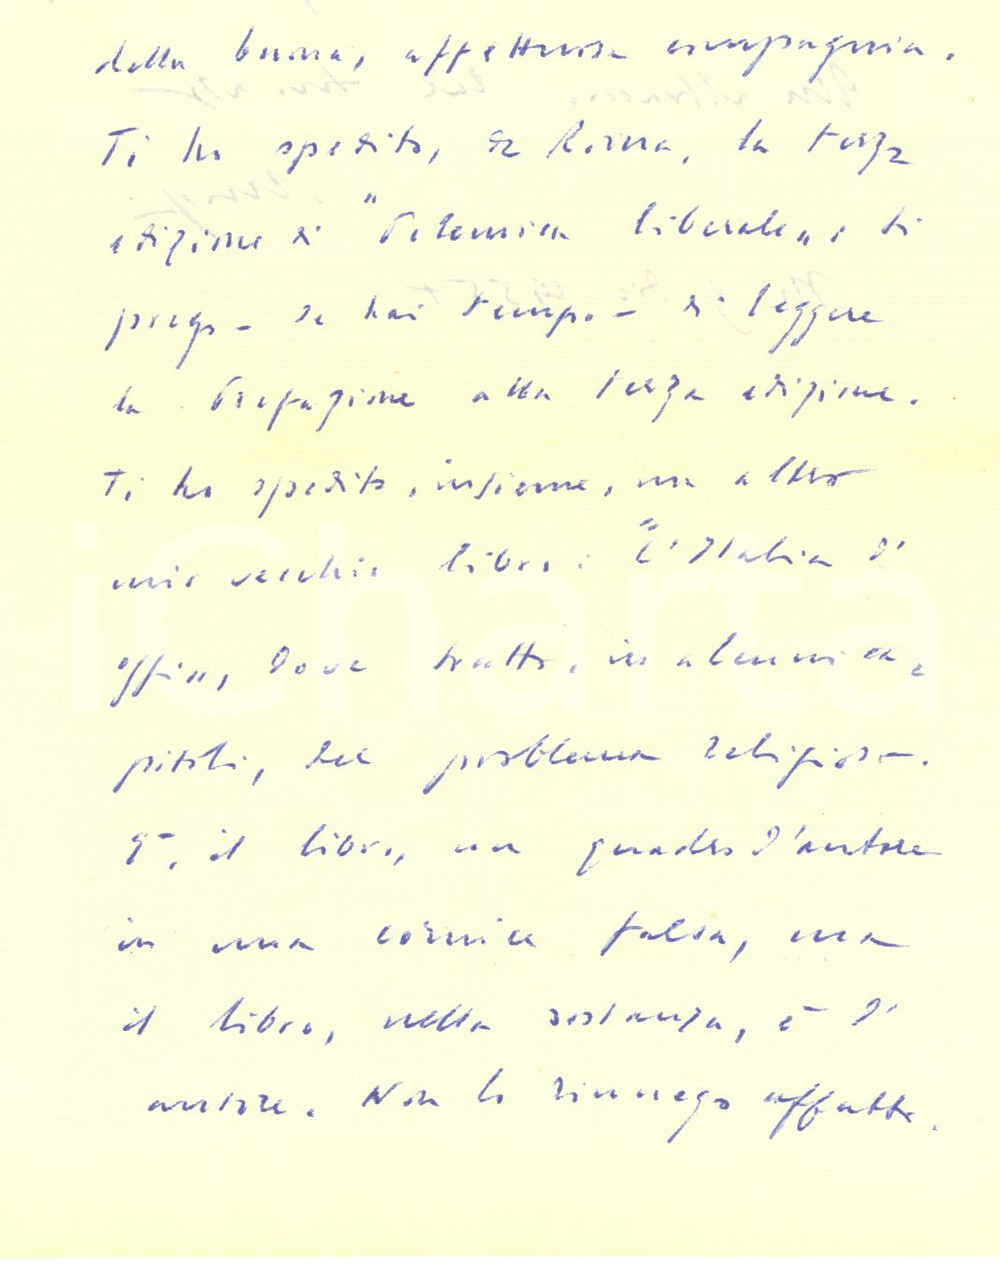 della buona, affettuosa compagnia.
Ti ho spedito, da Roma, la terza
edizione di "Polemica liberale"; ti
prego - se hai tempo - di leggere
la Prefazione alla terza edizione.
Ti ho spedito, insieme, un altro
mio vecchio libro: "L'Italia d'
oggi", dove tratto, in alcuni ca-
pitoli, del problema religioso.
È, il libro, un quadro d'autore
in una cornice falsa, ma
il libro, nella sostanza, è d'
autore. Non lo rinnego affatto.
iCharta